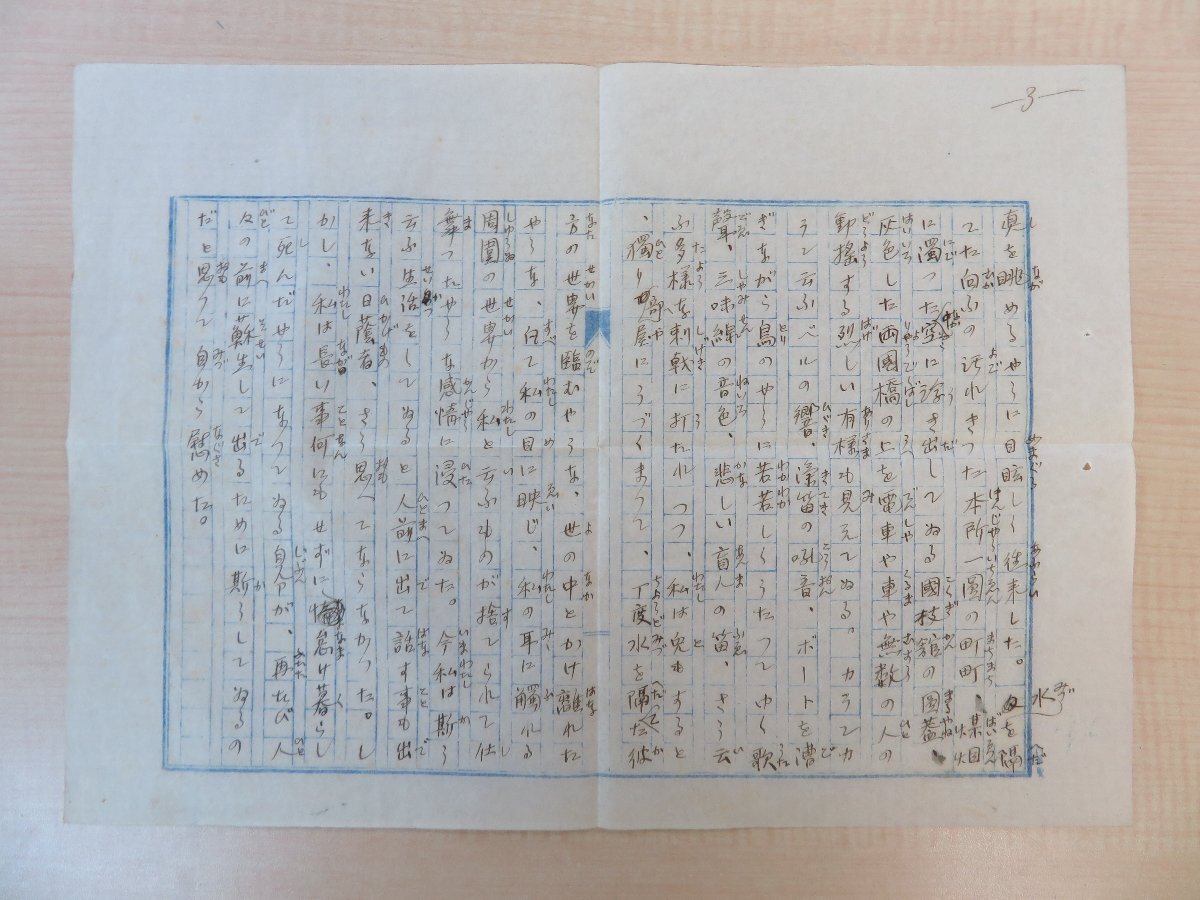 3
真を眺めるやうに目眩しく往来した。水を隔
てた向ふの汚れきつた本所一圓の町町、煤烟
に濁つた空に浮き出してゐる國技館の圓蓋
灰色した両國橋の上を電車や車や無数の人の
動揺する烈しい有様も見えてゐる。カランカ
ランと云ふベルの響、滊笛の吼音、ボートを漕
ぎながら鳥のやうに若若しくうたつてゆく歌
聲、三味線の音色、悲しい盲人の笛、さう云
ふ多様な刺戟に打たれつつ、私は兎もすると
、獨り部屋にうづくまつて、丁度水を隔てた彼
方の世界を臨むやうな、世の中とかけ離れた
やうな、凡て私の目に映じ、私の耳に觸れる
周圍の世界から私と云ふものが捨てられて仕
舞つたやうな感情に浸つてゐた。今私は斯う
云ふ生活をしてゐると人前に出て話す事も出
来ない日蔭者、さう思へてならなかつた。し
かし、私は長い事何にもせずに怠け暮らし
て死んだやうになつてゐる自分が、再たび人
々の前に蘇生して出るために斯うしてゐるの
だと思つて自から慰めた。